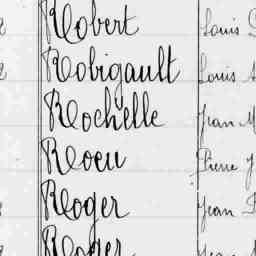 Robert Louis
Robigault Louis
Rochelle Jean
Rocu Pierre
Roger Jean
Roger Jean